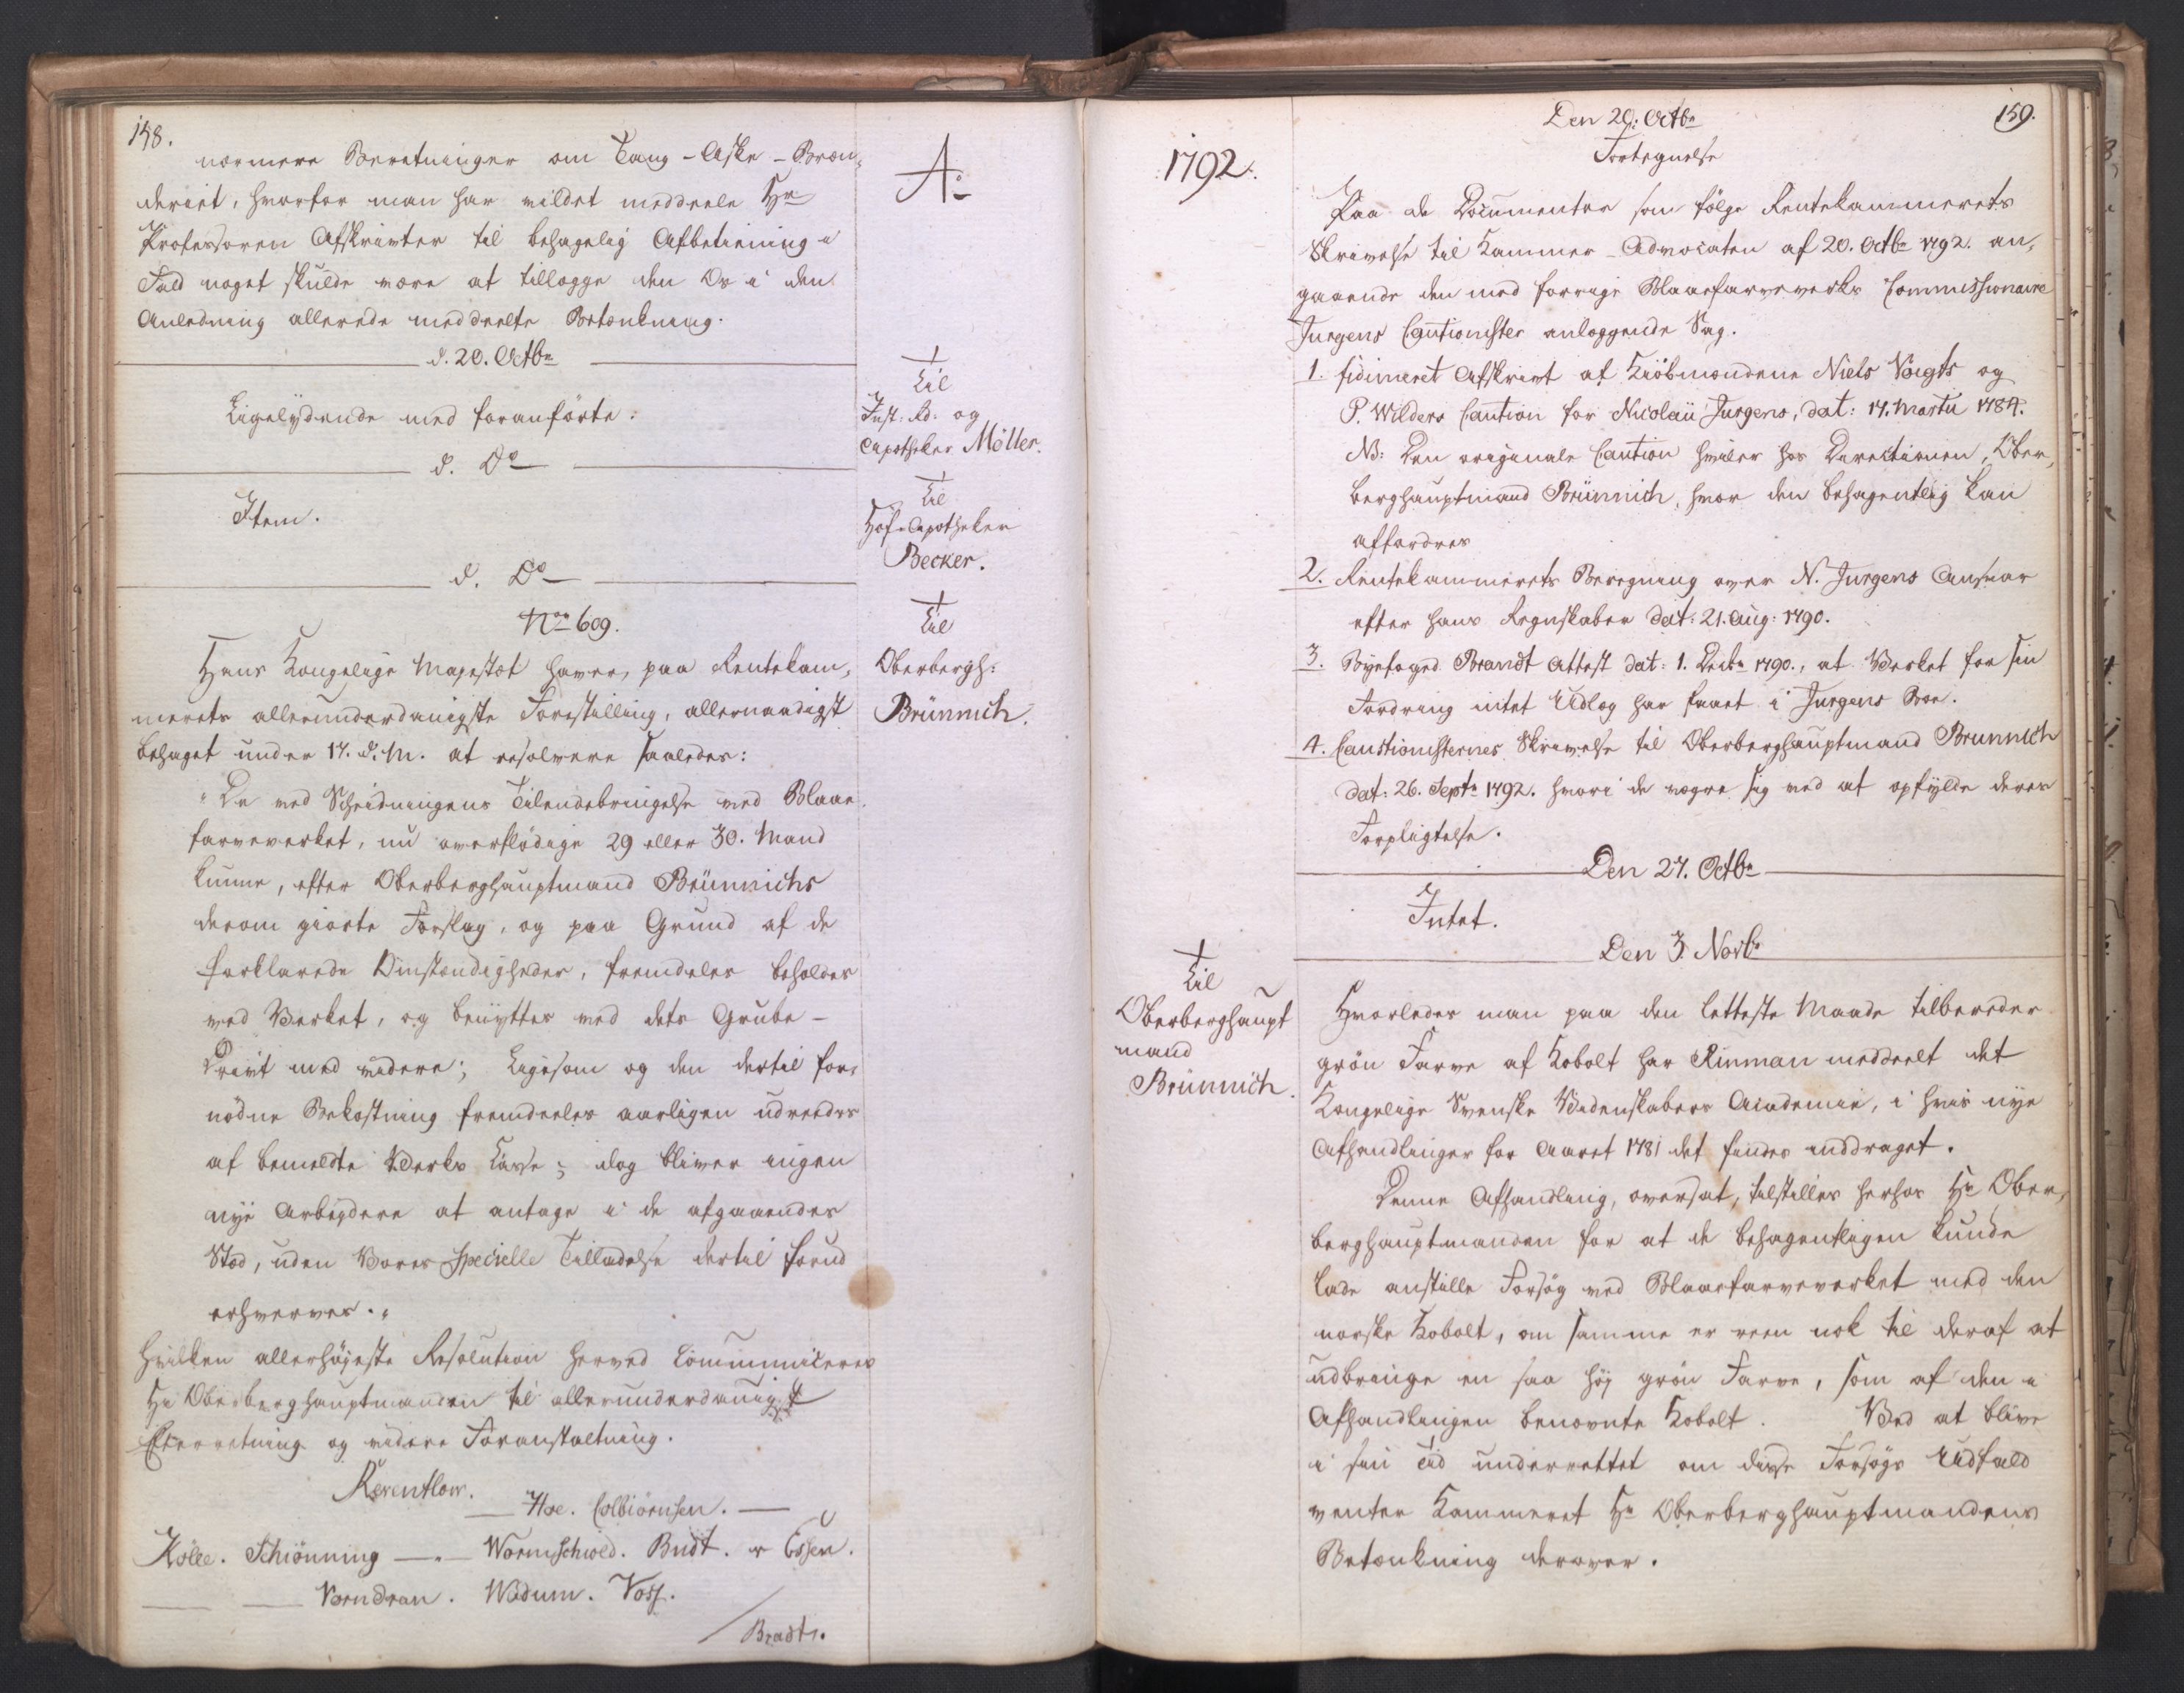 158.
nærmere Beretninger om Tang-Aske-Bræn-
deriet, hvorfor man har villet meddeele Hr
Professoren Afskrivter til behagelig Afbetiening i
Fald noget skulde være at tillægge den Os i den
Anledning allerede meddeelte Betænkning.
d. 20. Octbr
Ligelydende med foranførte.
d. Do
Item.
d. Do
No 609.
Hans Kongelige Majestæt haver, paa Rentekam-
merets allerunderdanigste Forestilling, allernaadigst
behaget under 17. d. M. at resolvere saaledes:
"De ved Scheidningens Tilendebringelse ved Blaae
farveverket, nu overflødige 29 eller 30. Mand
kunne, efter Oberberghauptmand Brünnichs
derom giorte Forslag, og paa Grund af de
forklarede Omstændigheder, fremdeles beholdes
ved Verket, og benyttes ved dets Grube-
Drivt med videre; Ligesom og den dertil for-
nødne Bekostning fremdeeles aarligen udreedes
af bemeldte Verks Casse; dog bliver ingen
nye Arbejdere at antage i de afgaaendes
Stæd, uden Vores specielle Tilladelse dertil forud
erhverves."
Hvilken allerhøjeste Resolution herved communiceres
Hr Oberberghauptmanden til allerunderdanigst
Efterretning og videre Foranstaltning.
Reventlow.
Hoe. Colbiørnsen.
Kølle. Schiønning Wormschiold. Bridt. v Essen.
Vorndran. Widum. Voss.
Bradt.
A:
Til
Just: Rd: og
Apotheker Möller.
Til
Hof-Apotheker
Becker.
Til
Oberbergh:
Brünnich.
1792.
Til
Oberberghaupt
mand
Brünnich.
159.
Den 20. Octbr
Fortegnelse
Paa de Documenter som følge Rentekammerets
Skrivelse til Kammer-Advocaten af 20. Octbr 1792. an-
gaaende den med forrige Blaaefarveverks Commissionaire
Jurgens Cautionister anlæggende Sag.
1. fidimeret Afskrivt af Kiöbmændene Niels Voigts og
P. Wilders Caution for Nicolaii Jurgens, dat: 17. Martii 1784.
NB: Den originale Caution hviler hos Directionen, Ober-
berghauptmand Brünnich, hvor den behagentlig kan
affordres
2. Rentekammerets Beregning over N. Jurgens Ansvar
efter hans Regnskaber dat: 21. Aug: 1790.
3. Byefoged Brandt Attest dat: 1. Decbr 1790., at Verket for sin
Fordring intet Udlæg har faaet i Jurgens Boe.
4. Cautionisternes Skrivelse til Oberberghauptmand Brunnich
dat: 26. Septr 1792. hvori de vægre sig ved at opfylde deres
Forpligtelse.
Den 27. Octbr
Intet.
Den 3. Novbr
Hvorledes man paa den letteste Maade tilbereder
grøn Farve af Kobolt har Rinman meddeelt det
Kongelige Svenske Videnskabers Academie, i hvis nye
Afhandlinger for Aaret 1781 det findes inddraget.
Denne Afhandling, oversat, tilstilles herhos Hr Ober-
berghauptmanden for at de behagentligen kunde
lade anstille Forsøg ved Blaaefarveverket med den
norske Kobolt, om samme er reen nok til deraf at
udbringe en saa høj grøn Farve, som af den i
Afhandlingen benævnte Kobolt. Ved at blive
i sin Tid underrettet om disse Forsøgs Udfald
venter Kammeret Hr Oberberghauptmandens
Betænkning derover.